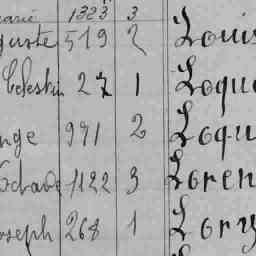 1323 3
guste 519 2 Louis
Celestin 27 1 Loqu
nge 971 2 Loqu
Octave 1122 3 Loren
oseph 268 1 Lory